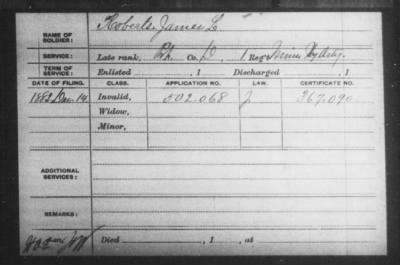 NAME OF SOLDIER: Roberts, James L.
SERVICE: Late rank, Pt, Co. D, 1 Reg't Minn Hy Arty.
TERM OF SERVICE: Enlisted , 1 Discharged , 1
DATE OF FILING. CLASS. APPLICATION NO. LAW. CERTIFICATE NO.
1883 Dec. 14 Invalid, 502.068 J 367.090
Widow,
Minor,
ADDITIONAL SERVICES:
REMARKS:
Died , 1 , at